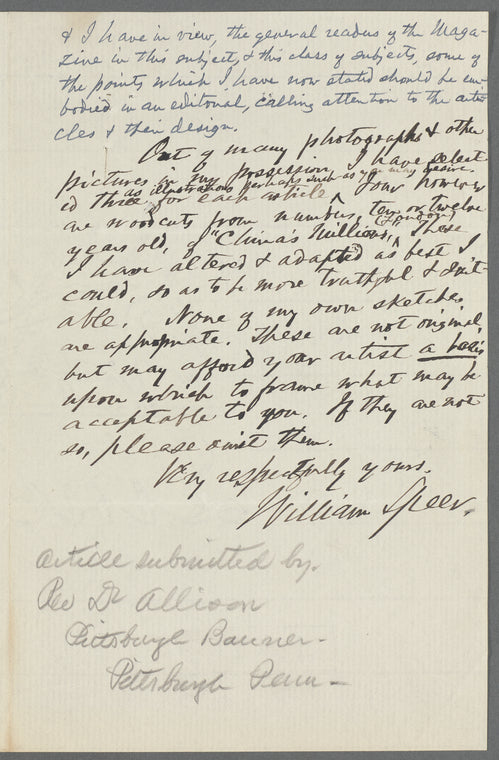 & I have in view, the general readers of the Maga-
zine in this subject, & this class of subjects, some of
the points which I have now stated should be em-
bodied in an editorial, calling attention to the arti-
cles & their design.
Out of many photographs & other
pictures in my possession, I have select-
as illustrations perhaps such as you may desire.
ed three for each article. Four however
are woodcuts from numbers, ten or twelve
(London)
years old, of "China's Millions." These
I have altered & adapted as best I
could, so as to be more truthful & suit-
able. None of my own sketches
are appropriate. These are not original,
but may afford your artist a basis
upon which to frame what may be
acceptable to you. If they are not
so, please omit them.
Very respectfully yours,
William Speer.
Article submitted by.
Rev Dr Allison
Pittsburgh Banner -
Pittsburgh Penn -